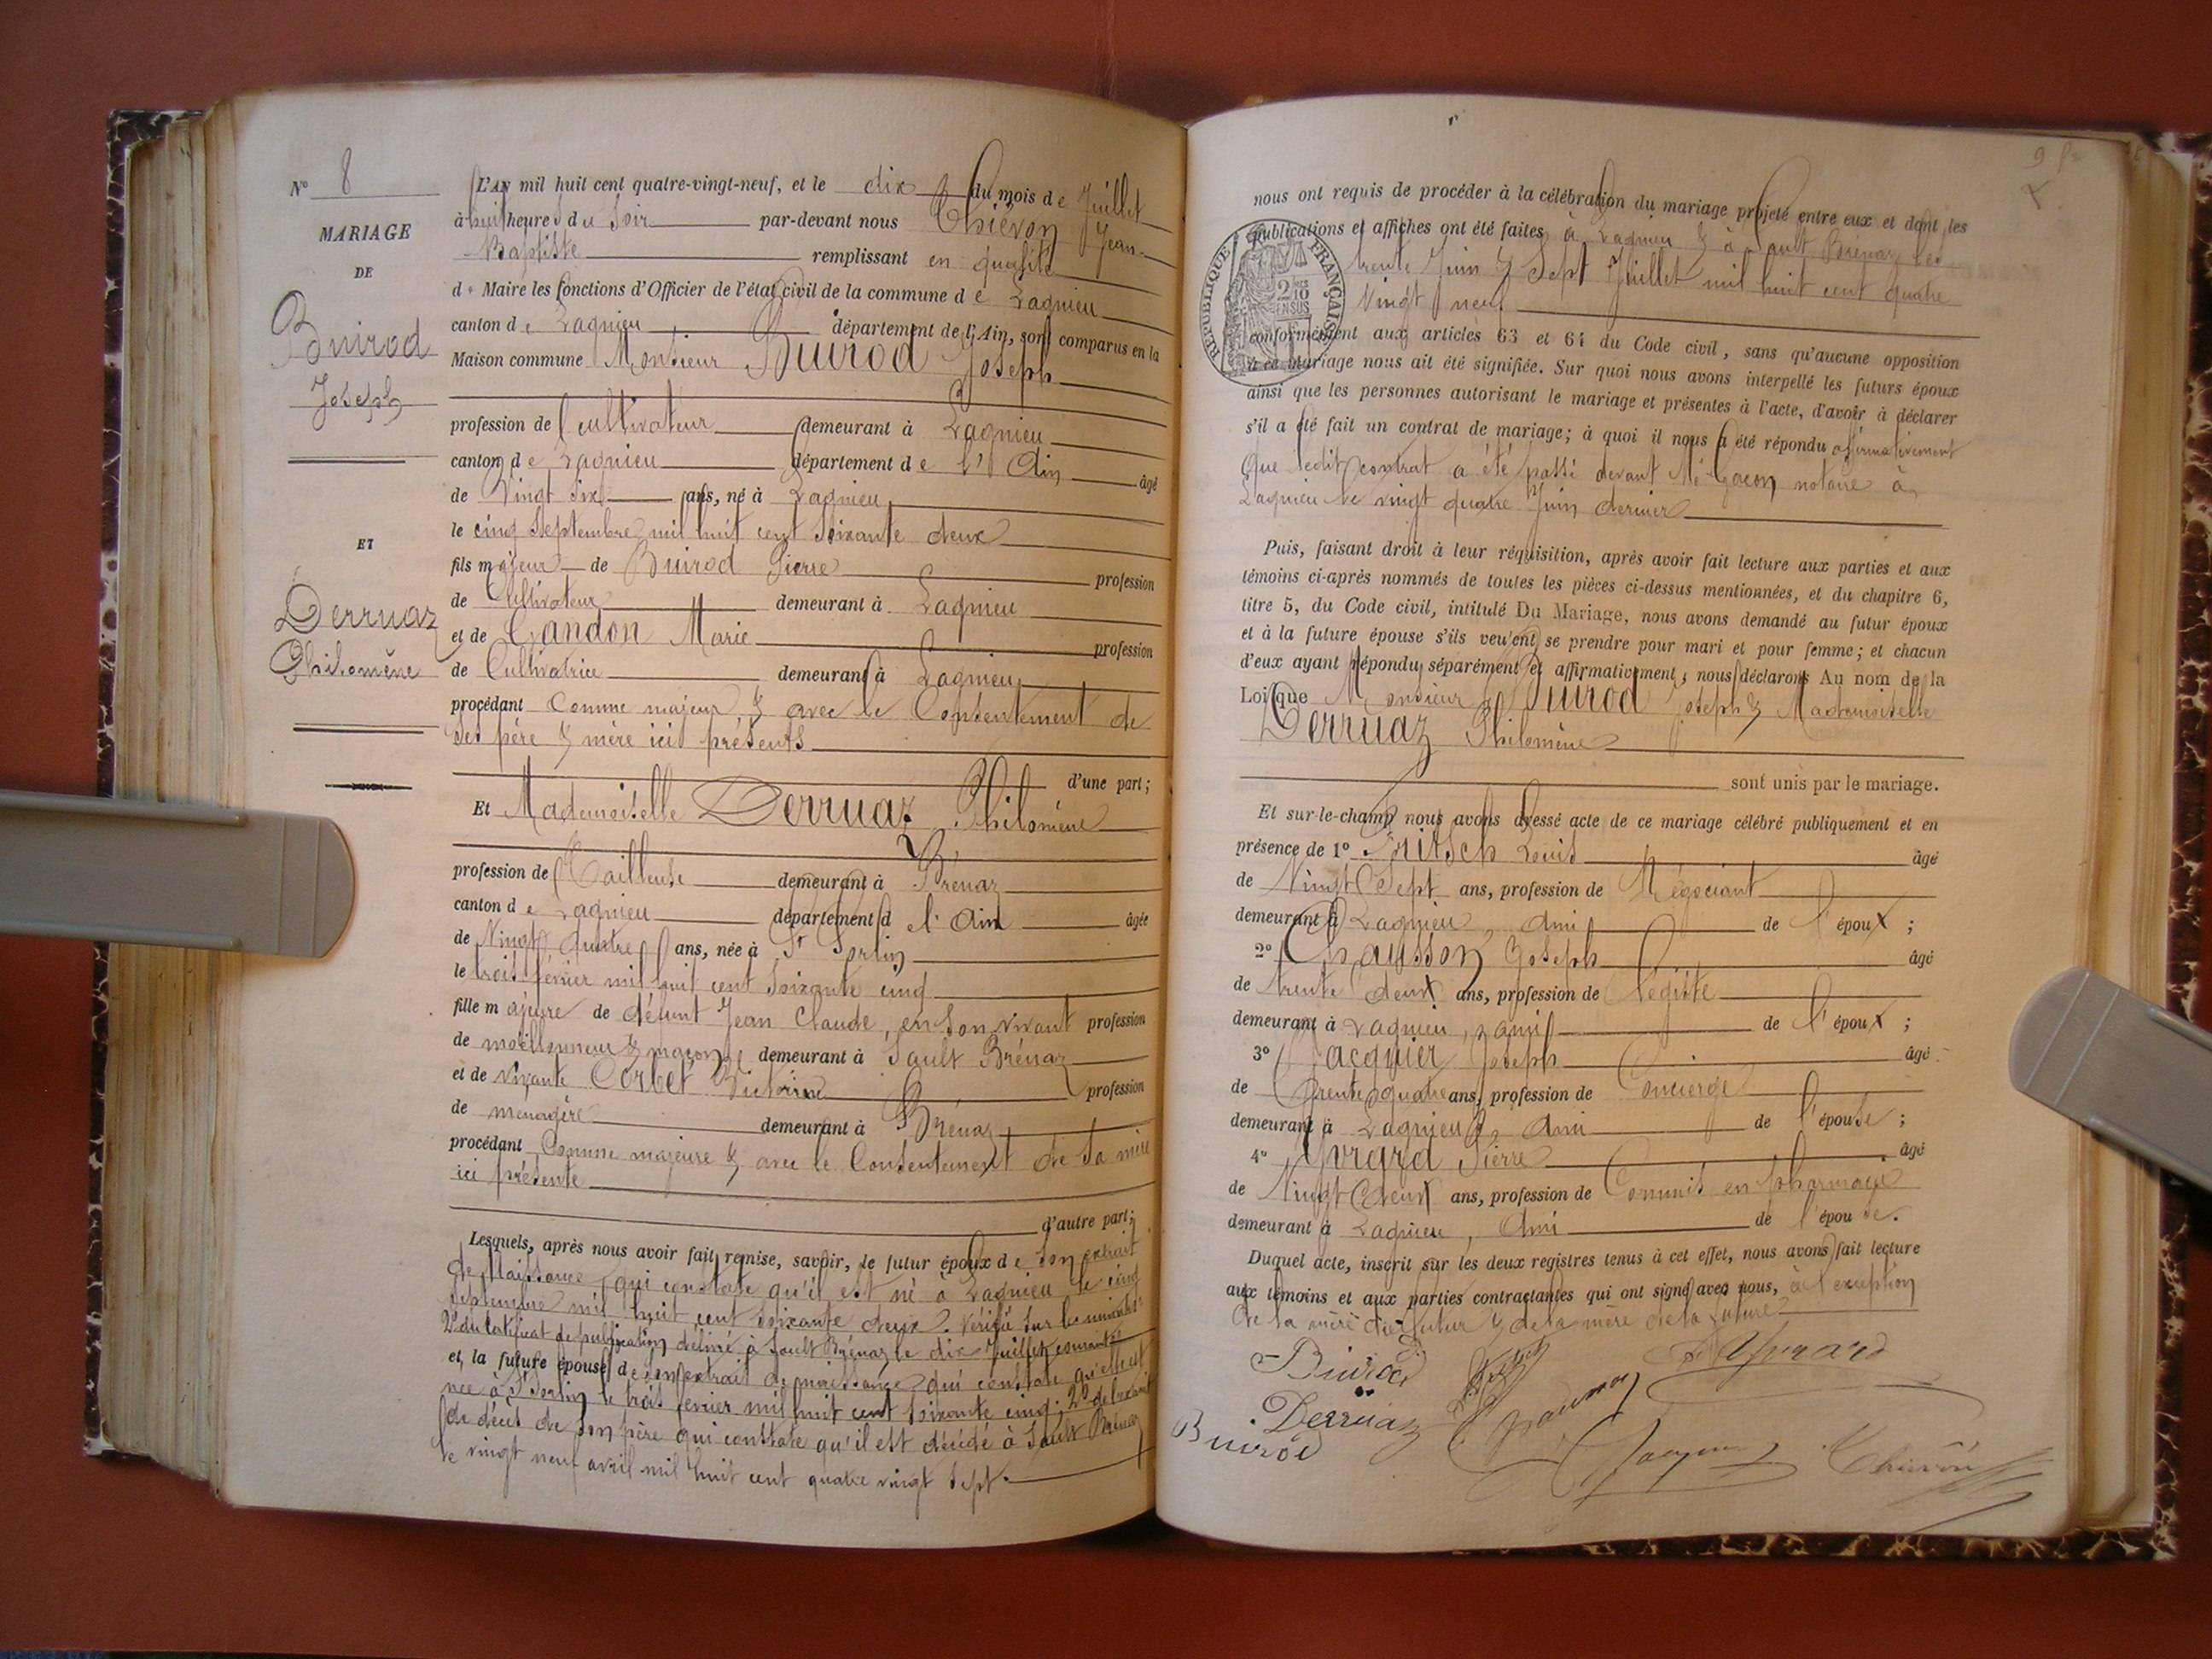 N° 8
MARIAGE
DE
Buirod
Joseph
ET
Derruaz
Philomène
L'AN mil huit cent quatre-vingt-neuf, et le dix du mois de Juillet
à huit heures du Soir par-devant nous Chiévon Jean-
Baptiste remplissant en qualité
de Maire les fonctions d'Officier de l'état civil de la commune de Lagnieu
canton de Lagnieu, département de l'Ain, sont comparus en la
Maison commune Monsieur Buirod Joseph
profession de Cultivateur demeurant à Lagnieu
canton de Lagnieu département de l'Ain âgé
de Vingt six ans, né à Lagnieu
le cinq Septembre mil huit cent soixante deux
fils majeur de Buirod Pierre profession
de Cultivateur demeurant à Lagnieu
et de Gandon Marie profession
de Cultivatrice demeurant à Lagnieu
procédant Comme majeur & avec le Consentement de
ses père & mère ici présents
d'une part;
Et Mademoiselle Derruaz Philomène
profession de Tailleuse demeurant à Brénaz
canton de Lagnieu département d l'Ain âgée
de Vingt quatre ans, née à St Sorlin
le trois février mil huit cent soixante cinq
fille majeure de défunt Jean Claude, en son vivant profession
de moëllonneur & maçon, demeurant à Sault Brénaz
et de vivante Corbet profession
de ménagère demeurant à Brénaz
procédant Comme majeure & avec le Consentement de sa mère
ici présente
d'autre part;
Lesquels, après nous avoir fait remise, savoir, le futur époux de son extrait
de Naissance, qui constate qu'il est né à Lagnieu le cinq
septembre mil huit cent soixante deux. Vérifié sur les minutes
2° du Certificat de publication délivré à Sault Brénaz le dix Juillet courant
et la future épouse de son extrait de naissance qui constate qu'elle est
née à St Sorlin le trois février mil huit cent soixante cinq; 2° de l'extrait
de décès de son père qui constate qu'il est décédé à Sault Brénaz
le vingt neuf avril mil huit cent quatre vingt sept.
nous ont requis de procéder à la célébration du mariage projeté entre eux et dont les
publications et affiches ont été faites à Lagnieu & à Sault Brénaz les
trente Juin & Sept Juillet mil huit cent quatre
Vingt neuf
RÉPUBLIQUE FRANÇAISE
2/10 EN SUS
conformément aux articles 63 et 64 du Code civil, sans qu'aucune opposition
à ce mariage nous ait été signifiée. Sur quoi nous avons interpellé les futurs époux
ainsi que les personnes autorisant le mariage et présentes à l'acte, d'avoir à déclarer
s'il a été fait un contrat de mariage; à quoi il nous a été répondu affirmativement
Que ledit contrat a été passé devant Mé Gacon notaire à
Lagnieu le vingt quatre Juin dernier
Puis, faisant droit à leur réquisition, après avoir fait lecture aux parties et aux
témoins ci-après nommés de toutes les pièces ci-dessus mentionnées, et du chapitre 6,
titre 5, du Code civil, intitulé Du Mariage, nous avons demandé au futur époux
et à la future épouse s'ils veulent se prendre pour mari et pour femme; et chacun
d'eux ayant répondu séparément et affirmativement, nous déclarons Au nom de la
Loi que Monsieur Buirod Joseph & Mademoiselle
Derruaz Philomène
sont unis par le mariage.
Et sur-le-champ nous avons dressé acte de ce mariage célébré publiquement et en
présence de 1° Fritsch Louis âgé
de Vingt Sept ans, profession de Négociant
demeurant à Lagnieu, ami de l'époux;
2° Chausson Joseph âgé
de trente deux ans, profession de Légiste
demeurant à Lagnieu, ami de l'époux;
3° Jacquier Joseph âgé
de trente quatre ans, profession de Concierge
demeurant à Lagnieu, Ami de l'épouse;
4° Pierre âgé
de Vingt deux ans, profession de Commis en pharmacie
demeurant à Lagnieu, Ami de l'épouse.
Duquel acte, inscrit sur les deux registres tenus à cet effet, nous avons fait lecture
aux témoins et aux parties contractantes qui ont signé avec nous, à l'exception
de la mère du futur & de la mère de la future
Buirod
Derruaz
Buirod
Chiévon